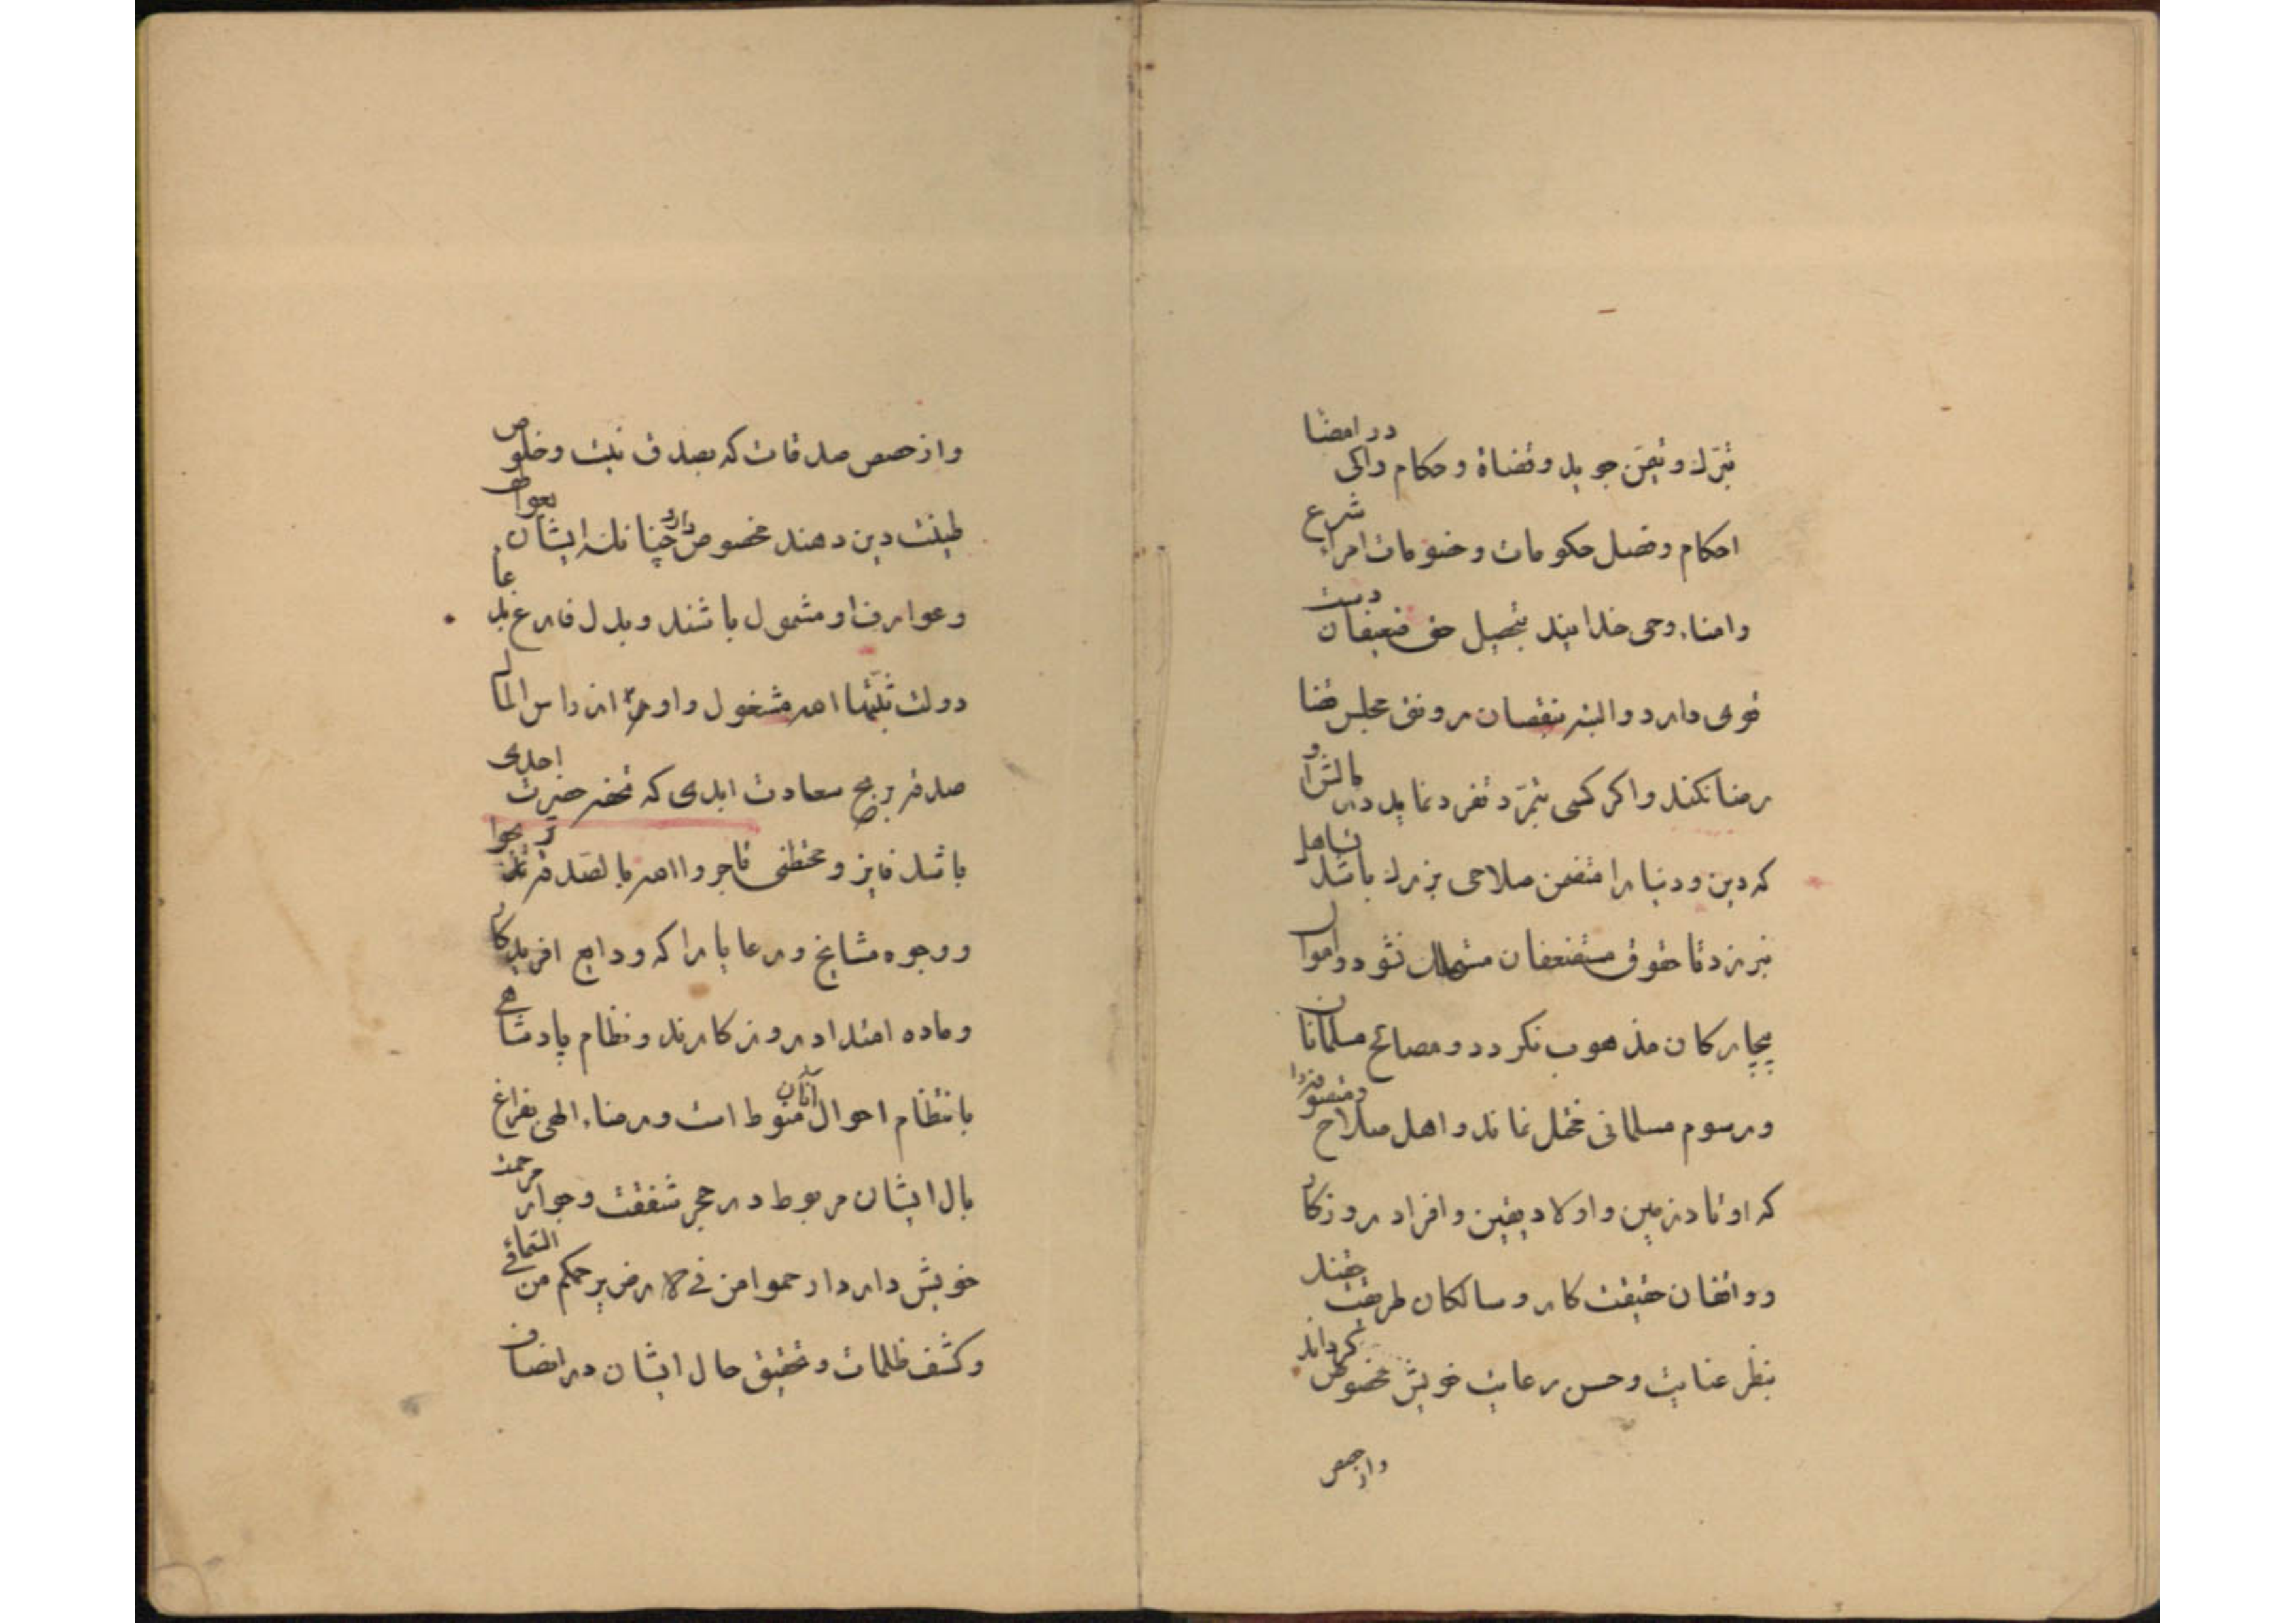 تبرّك و تیمّن جوید و قضاة و حکام را کی در امضا
احکام و فصل حکومات و خصومات امراء شرع
وامناء وحی خدایند بتحصیل حق ضعیفان دست
قوی دارد و البته بنقصان رونق مجلس قضا
رضا نکند و اکر کسی بتمرّد تفرد نماید در مالش او
که دین و دنیا را متضمن صلاحی بزرك باشد تساهل
نبرزد تا حقوق مستضعفان نشود و اموال
بیچارکان مذهوب نکردد و مصالح مسلمانان
و رسوم مسلمانی مختل نماند و اهل صلاح و تصون را
که اوتاد زمین و اولاد یقین و افراد روزکار
و واقفان حقیقت کار و سالکان طریقت حقند
بنظر عنایت و حسن رعایت خویش مخصوص کرداند
و از حصص
و از حصص صدقات که بصدق نیت و خلوص
طینت دین دهند مخصوص دارد چنانك ایشان بعواطف
و عوارف او مشمول باشند و بدل فارغ بدعا
دولت اهر مشغول و او از راس المال
صدقه بربح سعادت ابدی که تحفه حضرت احدی
باشد فایز و محظی تاجروا الله بالصدقة تربحوا
و وجوه مشایخ و رعایا را که ودایع افریدکار
و ماده امتداد روزکارند و نظام پادشاهی
بانتظام احوال آنان منوط است و رضاء الهی بفراغ
بال ایشان مربوط در حجر شفقت و جوار مرحمت
خویش دارد ارحموا من فی الارض یرحمکم من فی السماء
و کشف ظلمات و تحقیق حال ایشان در انصاف